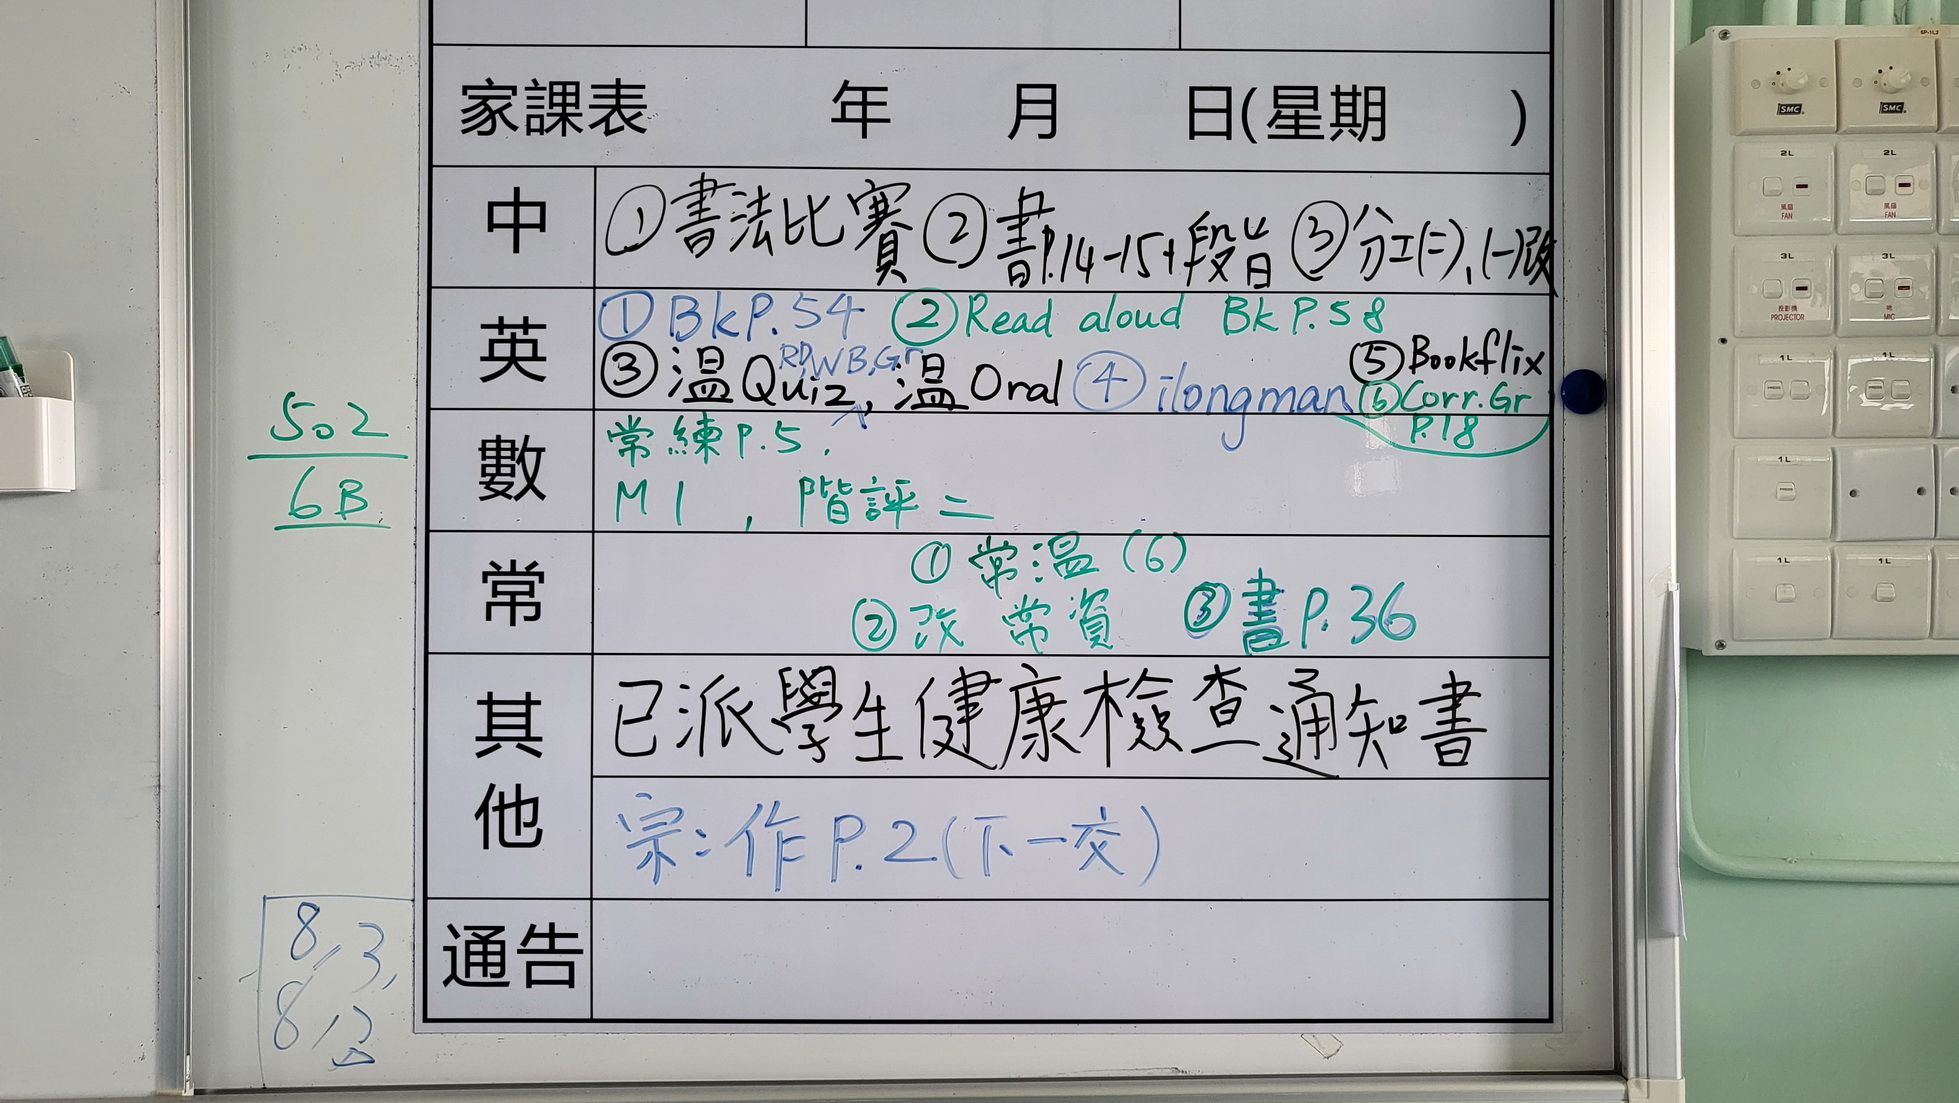 家課表 年 月 日(星期 )
中 ①書法比賽 ②書P.14-15+段旨 ③分工(二),(一)改
英 ①BkP.54 ②Read aloud Bk P.58
③溫Quiz, RD,WB,Gr 溫Oral ④ilongman ⑤Bookflix
⑥Corr.Gr P.18
數 常練P.5,
M1, 階評二
常 ①常溫(6)
②改 常資 ③書P.36
其他 已派學生健康檢查通知書
宗:作P.2(下一交)
通告
502
6B
8,3,
8,2
SP-1L2
SMC SMC
2L 2L
風扇 FAN 風扇 FAN
3L 3L
投影機 PROJECTOR 咪 MIC
1L 1L
1L
1L 1L